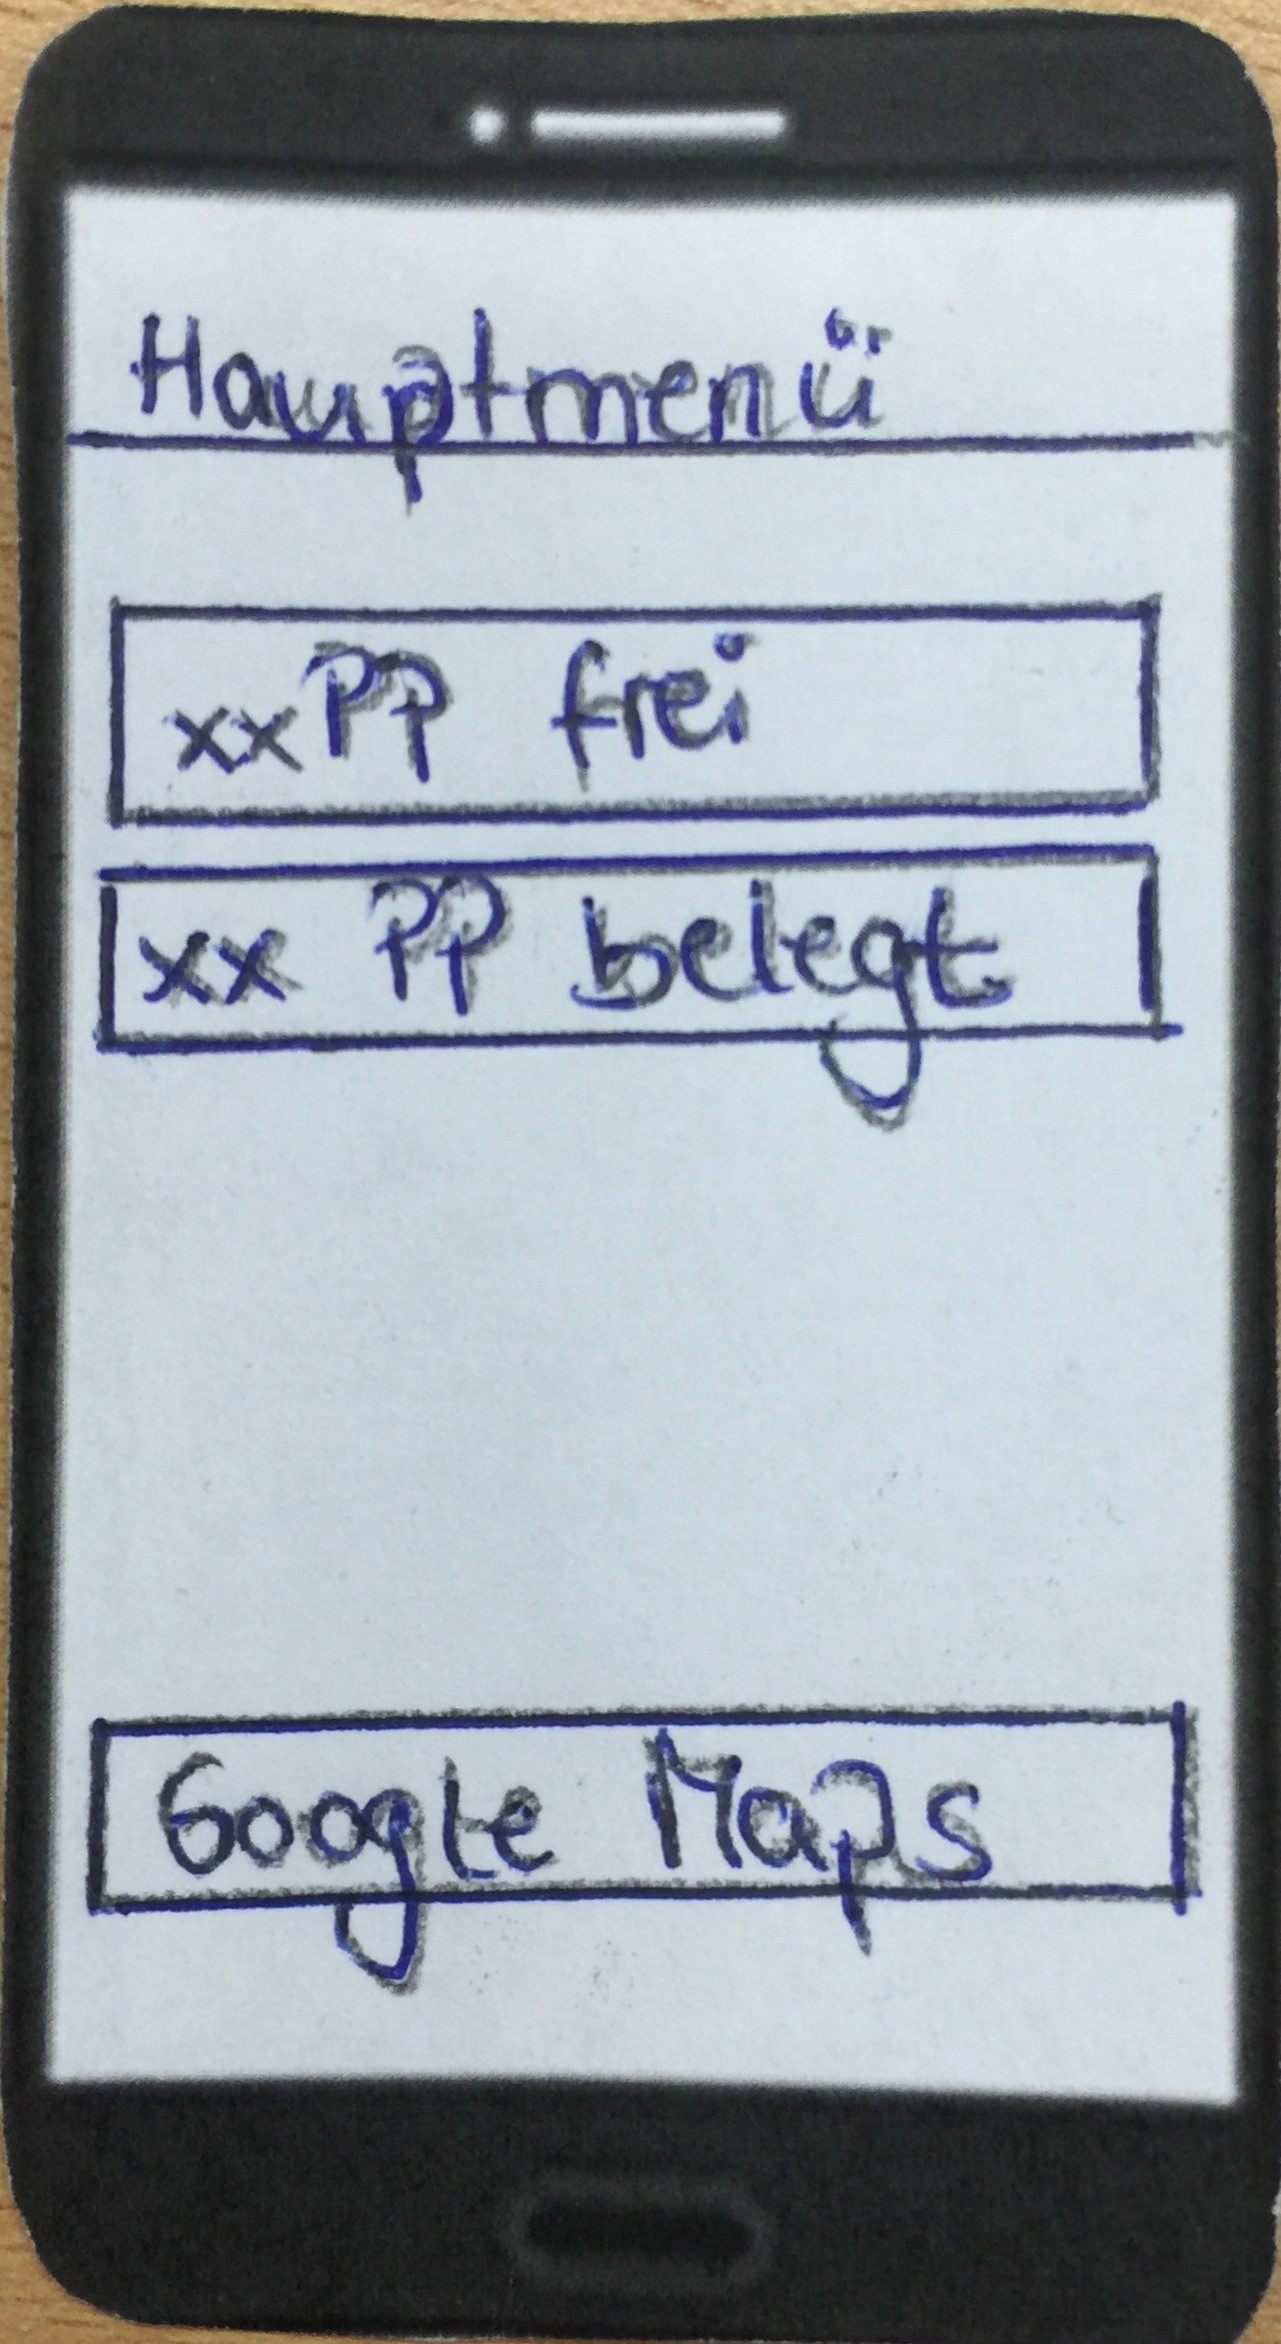 Hauptmenü
xx PP frei
xx PP belegt
Google Maps